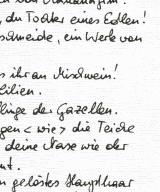 du Tochter eines Edlen!
schmeide, ein Werk von
ihr an Mischwein!
Lilien.
linge der Gazellen.
gen < wie > die Teiche
deine Nase wie der
nt.
gelöstes Haupthaar